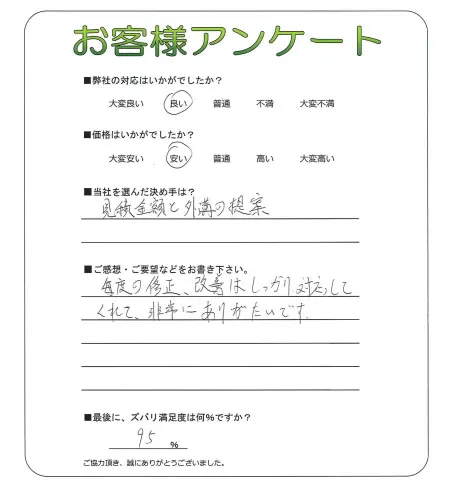 お客様アンケート
■弊社の対応はいかがでしたか？
大変良い 良い 普通 不満 大変不満
■価格はいかがでしたか？
大変安い 安い 普通 高い 大変高い
■当社を選んだ決め手は？
見積金額と外溝の提案
■ご感想・ご要望などをお書き下さい。
毎度の修正、改善はしっかり対応して
くれて、非常にありがたいです。
■最後に、ズバリ満足度は何％ですか？
95 ％
ご協力頂き、誠にありがとうございました。